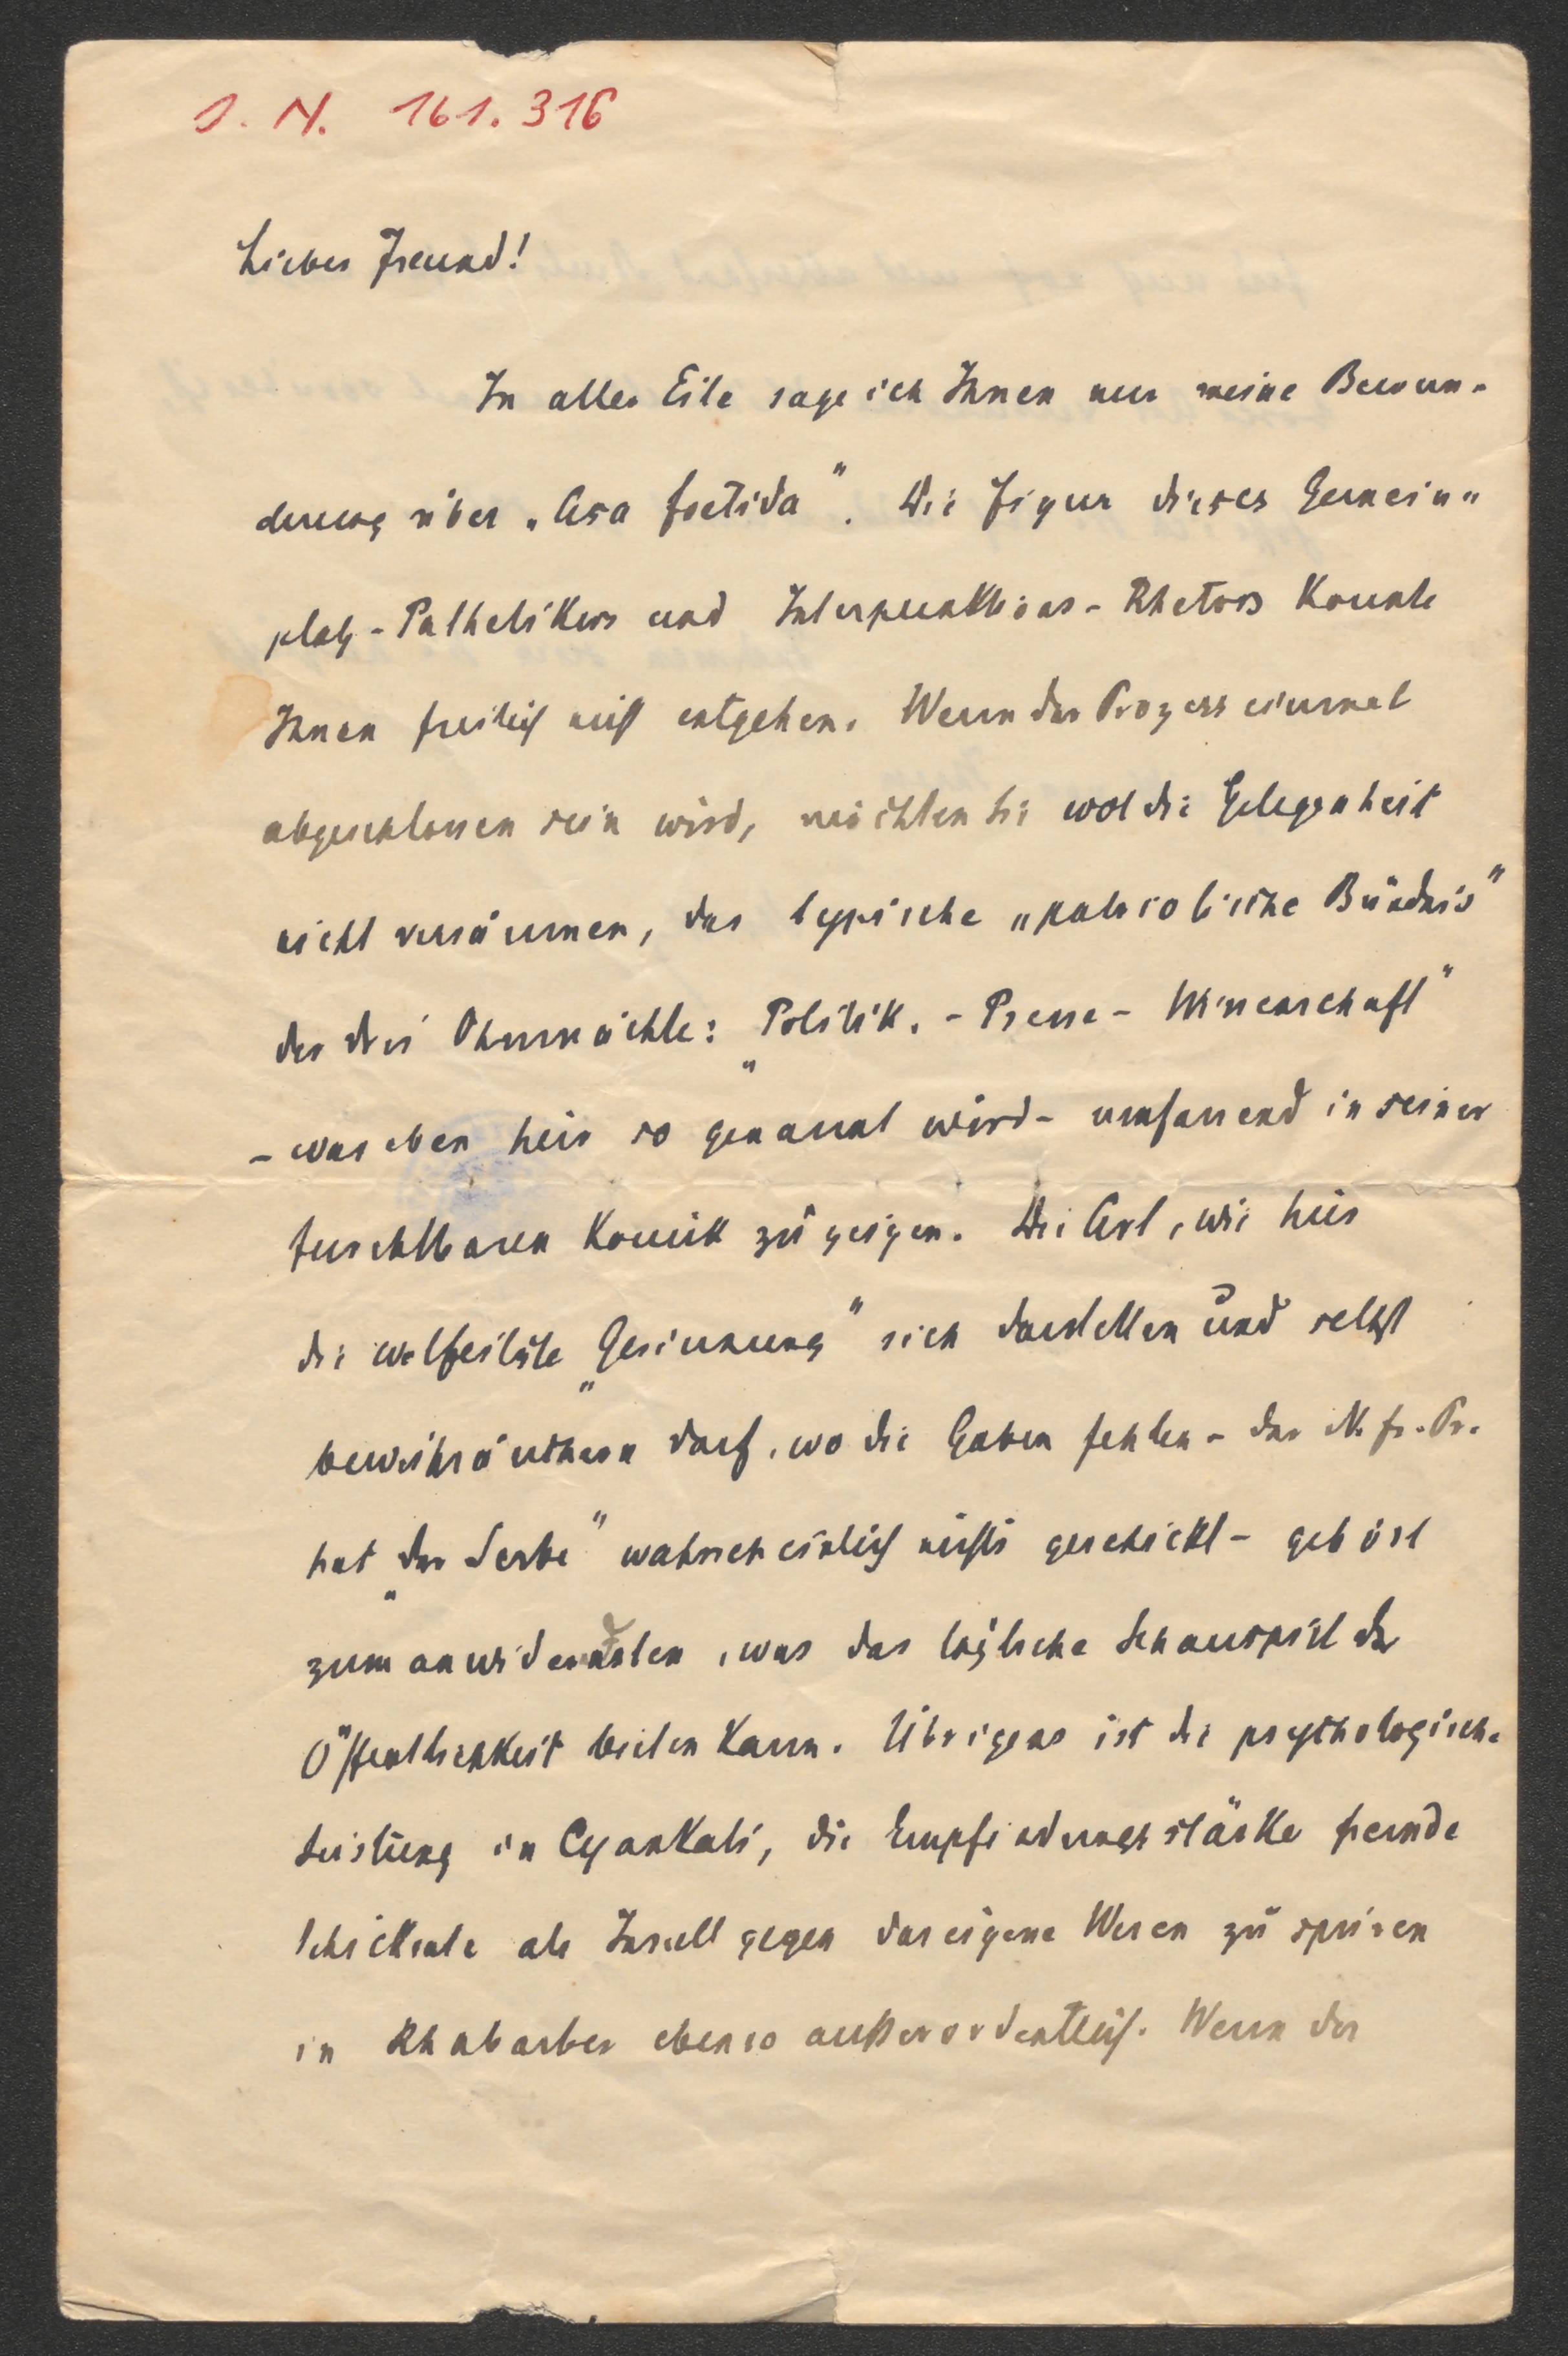 I. N. 161.316
Lieber Freund!
In aller Eile sage ich Ihnen nur meine Bewun-
derung über „Asa foetida“. Die Figur dieses Gemein-
platz-Pathetikers und Interpunktions-Rhetors konnte
Ihnen freilich nicht entgehen. Wenn der Prozess einmal
abgeschlossen sein wird, möchten Sie wol die Gelegenheit
nicht versäumen, das typische „patriotische Bündnis“
der drei Ohnmächte: „Politik. - Presse - Wissenschaft“
- was eben hier so genannt wird - umfassend in seiner
furchtbaren Komik zu zeigen. Die Art, wie hier
die wolfeilste „Gesinnung“ sich darstellen und selbst
beweihräuchern darf, wo die Gaben fehlen - der N. fr. Pr.
hat „der Serbe“ wahrscheinlich nichts geschickt - gehört
zum anwiderndsten, was das tägliche Schauspiel der
Öffentlichkeit bieten kann. Übrigens ist die psychologische
Leistung in Cyankali, die Empfindungsstärke fremde
Schicksale als Insult gegen das eigene Wesen zu spüren
in Rhabarber ebenso außerordentlich. Wenn der